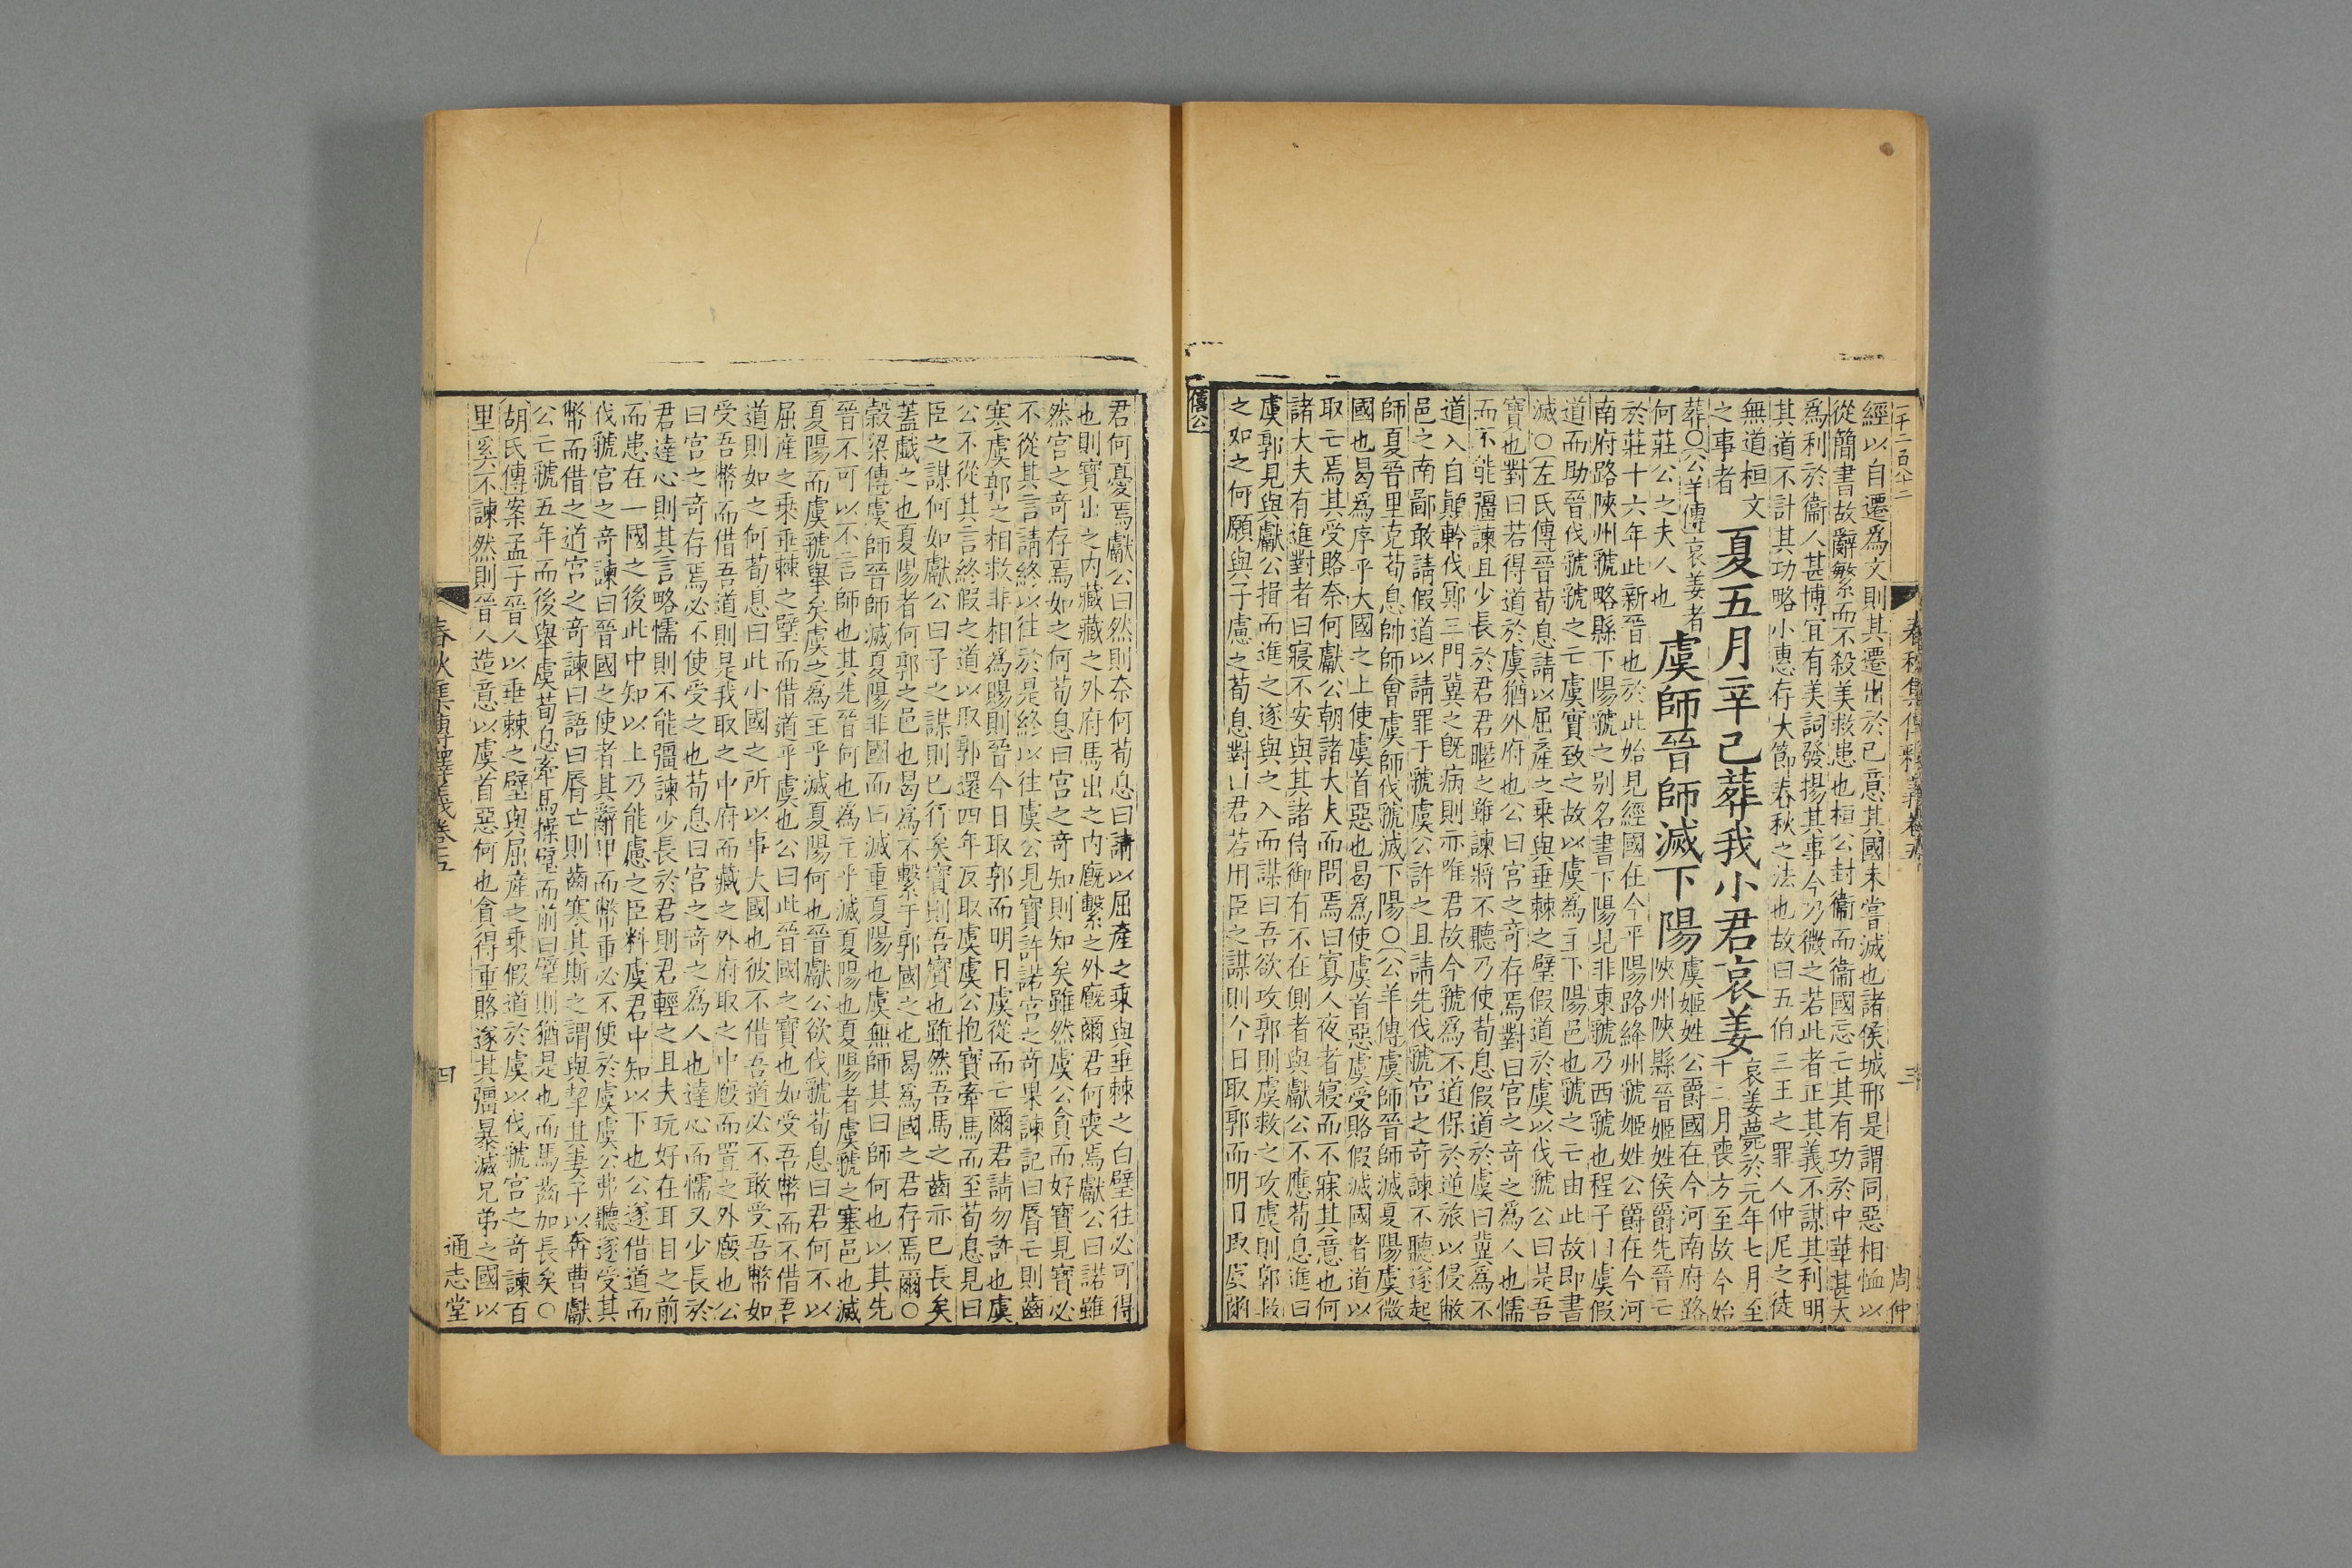 經以自遷爲文則其遷出於已意其國未嘗滅也諸侯城邢是謂同惡相恤以
從簡書故辭繁而不殺美救患也桓公封衞而衞國忘亡其有功於中華甚大
爲利於衞人甚博宜有美詞發揚其事今乃微之若此者正其義不謀其利明
其道不計其功略小惠存大節春秋之法也故曰五伯三王之罪人仲尼之徒
無道桓文之事者
夏五月辛已葬我小君哀姜
哀姜薨於元年七月至
十二月喪方至故今始
葬○公羊傳哀姜者
何莊公之夫人也
虞師晉師滅下陽
虞姬姓公爵國在今河南府路
陜州陜縣晉姬姓侯爵先晉亡
於莊十六年此新晉也於此始見經國在今平陽路絳州虢姬姓公爵在今河
南府路陜州虢略縣下陽虢之别名書下陽見非東虢乃西虢也程子曰虞假
道而助晉伐虢虢之亡虞實致之故以虞爲主下陽邑也虢之亡由此故即書
滅○左氏傳晉荀息請以屈產之乗與垂棘之璧假道於虞以伐虢公曰是吾
寶也對曰若得道於虞猶外府也公曰宮之奇存焉對曰宮之奇之爲人也懦
而不能彊諫且少長於君君暱之雖諫將不聽乃使荀息假道於虞曰冀爲不
道入自顛軨伐鄍三門冀之旣病則亦唯君故今虢爲不道保於逆旅以侵敝
邑之南鄙敢請假道以請罪于虢虞公許之且請先伐虢宮之奇諫不聽遂起
師夏晉里克荀息帥師會虞師伐虢滅下陽○公羊傳虞師晉師滅夏陽虞微
國也曷爲序乎大國之上使虞首惡也曷爲使虞首惡虞受賂假滅國者道以
取亡焉其受賂奈何獻公朝諸大夫而問焉曰寡人夜者寢而不寐其意也何
諸大夫有進對者曰寢不安與其諸侍御有不在側者與獻公不應荀息進曰
虞郭見與獻公揖而進之遂與之入而謀曰吾欲攻郭則虞救之攻虞則郭救
之如之何願與子慮之荀息對曰君若用臣之謀則今日取郭而明日取虞爾
僖公
春秋集傳釋義卷五
三
周仲
君何憂焉獻公曰然則奈何荀息曰請以屈產之乗與垂棘之白璧往必可得
也則寶出之内藏藏之外府馬出之内廐繫之外廐爾君何喪焉獻公曰諾雖
然宮之奇存焉如之何荀息曰宮之奇知則知矣雖然虞公貪而好寶見寶必
不從其言請終以往於是終以往虞公見寶許諾宮之奇果諫記曰脣亡則齒
寒虞郭之相救非相爲賜則晉今日取郭而明日虞從而亡爾君請勿許也虞
公不從其言終假之道以取郭還四年反取虞虞公抱寶牽馬而至荀息見曰
臣之謀何如獻公曰子之謀則已行矣寶則吾寶也雖然吾馬之齒亦已長矣
蓋戲之也夏陽者何郭之邑也曷爲不繫于郭國之也曷爲國之君存焉爾○
榖梁傳虞師晉師滅夏陽非國而曰滅重夏陽也虞無師其曰師何也以其先
晉不可以不言師也其先晉何也爲主乎滅夏陽也夏陽者虞虢之塞邑也滅
夏陽而虞虢舉矣虞之爲主乎滅夏陽何也晉獻公欲伐虢荀息曰君何不以
屈產之乗垂棘之璧而借道乎虞也公曰此晉國之寶也如受吾幣而不借吾
道則如之何荀息曰此小國之所以事大國也彼不借吾道必不敢受吾幣如
受吾幣而借吾道則是我取之中府而藏之外府取之中廐而置之外廐也公
曰宮之奇存焉必不使受之也荀息曰宮之奇之爲人也達心而懦又少長於
君達心則其言略懦則不能彊諫少長於君則君輕之且夫玩好在耳目之前
而患在一國之後此中知以上乃能慮之臣料虞君中知以下也公遂借道而
伐虢宮之奇諫曰晉國之使者其辭卑而幣重必不便於虞虞公弗聽遂受其
幣而借之道宮之奇諫曰語曰脣亡則齒寒其斯之謂與挈其妻子以奔曹獻
公亡虢五年而後舉虞荀息牽馬操璧而前曰璧則猶是也而馬齒加長矣○
胡氏傳案孟子晉人以垂棘之璧與屈產之乗假道於虞以伐虢宮之奇諫百
里奚不諫然則晉人造意以虞首惡何也貪得重賂遂其彊暴滅兄弟之國以
春秋集傳釋義卷五
四
通志堂